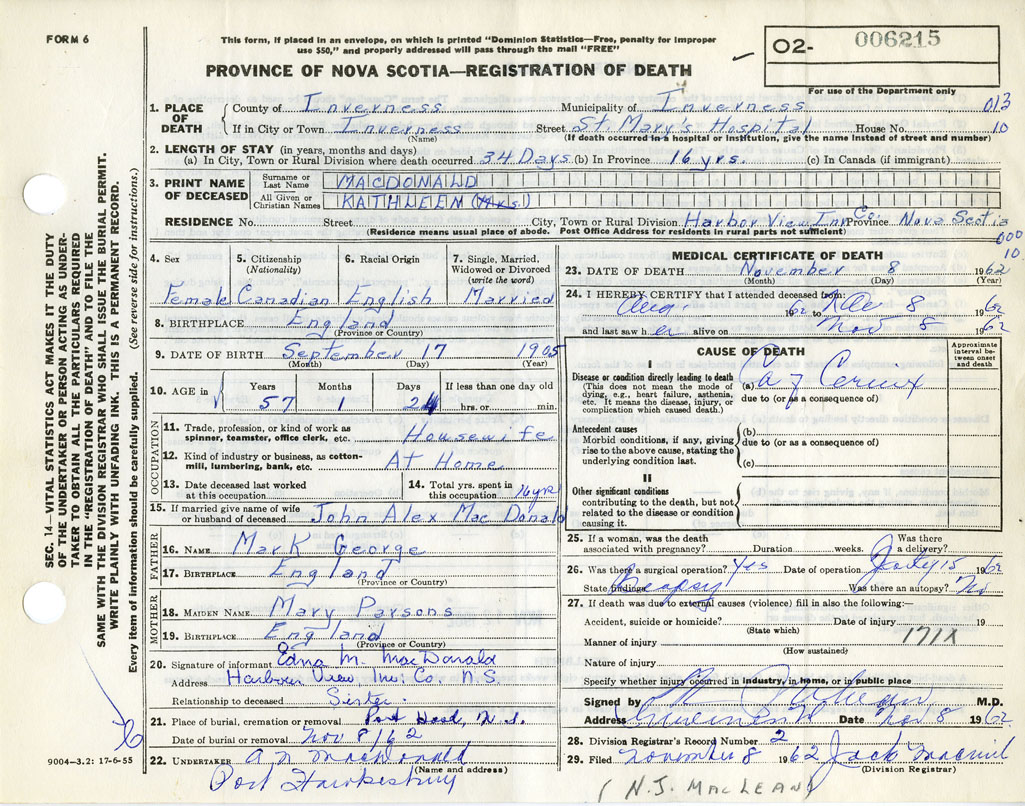 FORM 6
This form, if placed in an envelope, on which is printed "Dominion Statistics—Free, penalty for improper
use $50," and properly addressed will pass through the mail "FREE"
PROVINCE OF NOVA SCOTIA—REGISTRATION OF DEATH
02- 006215
For use of the Department only
1. PLACE OF DEATH County of Inverness Municipality of Inverness 013
If in City or Town Inverness Street St. Mary's Hospital House No. 10
(Name) (If death occurred in a hospital or institution, give the name instead of street and number)
2. LENGTH OF STAY (in years, months and days)
(a) In City, Town or Rural Division where death occurred 34 Days (b) In Province 16 yrs. (c) In Canada (if immigrant)
3. PRINT NAME OF DECEASED Surname or Last Name MACDONALD
All Given or Christian Names KATHLEEN (Mrs.)
RESIDENCE No. Street City, Town or Rural Division Harbor View Inv Co. Province Nova Scotia
(Residence means usual place of abode. Post Office Address for residents in rural parts not sufficient)
000
10
4. Sex 5. Citizenship (Nationality) 6. Racial Origin 7. Single, Married, Widowed or Divorced (write the word)
Female Canadian English Married
8. BIRTHPLACE England
(Province or Country)
9. DATE OF BIRTH September 17 1905
(Month) (Day) (Year)
10. AGE in Years Months Days If less than one day old
57 1 21 hrs. or min.
OCCUPATION
11. Trade, profession, or kind of work as spinner, teamster, office clerk, etc. Housewife
12. Kind of industry or business, as cotton-mill, lumbering, bank, etc. At Home
13. Date deceased last worked at this occupation 14. Total yrs. spent in this occupation 16 yrs
15. If married give name of wife or husband of deceased John Alex Mac Donald
FATHER
16. NAME Mark George
17. BIRTHPLACE England
(Province or Country)
MOTHER
18. MAIDEN NAME Mary Parsons
19. BIRTHPLACE England
(Province or Country)
20. Signature of informant Edna M. MacDonald
Address Harbour View, Inv. Co. N.S.
Relationship to deceased Sister
21. Place of burial, cremation or removal Port Hood, N.S.
Date of burial or removal Nov 8/62
22. UNDERTAKER A.N. MacDonald
(Name and address)
Port Hawkesbury
9004—3.2: 17-6-55
MEDICAL CERTIFICATE OF DEATH
23. DATE OF DEATH November 8 1962
(Month) (Day) (Year)
24. I HEREBY CERTIFY that I attended deceased from:
Aug. 1962 to Nov 8 1962
and last saw her alive on Nov 8 1962
CAUSE OF DEATH
Approximate interval between onset and death
I
Disease or condition directly leading to death
(This does not mean the mode of dying, e.g., heart failure, asthenia, etc. It means the disease, injury, or complication which caused death.)
(a) Ca of Cervix
due to (or as a consequence of)
Antecedent causes
Morbid conditions, if any, giving rise to the above cause, stating the underlying condition last.
(b)
due to (or as a consequence of)
(c)
II
Other significant conditions
contributing to the death, but not related to the disease or condition causing it.
25. If a woman, was the death associated with pregnancy? Duration weeks. Was there a delivery?
26. Was there a surgical operation? Yes Date of operation July 15 1962
State findings Biopsy Was there an autopsy? No
27. If death was due to external causes (violence) fill in also the following:—
Accident, suicide or homicide? Date of injury 19
(State which)
Manner of injury 171X
(How sustained)
Nature of injury
Specify whether injury occurred in industry, in home, or in public place
Signed by M.D.
Address Date Nov 8 1962
28. Division Registrar's Record Number 2
29. Filed November 8 1962
(Division Registrar)
(N.J. MACLEAN)
SEC. 14—VITAL STATISTICS ACT MAKES IT THE DUTY
OF THE UNDERTAKER OR PERSON ACTING AS UNDER-
TAKER TO OBTAIN ALL THE PARTICULARS REQUIRED
IN THE "REGISTRATION OF DEATH" AND TO FILE THE
SAME WITH THE DIVISION REGISTRAR WHO SHALL ISSUE THE BURIAL PERMIT.
WRITE PLAINLY WITH UNFADING INK. THIS IS A PERMANENT RECORD.
Every item of information should be carefully supplied. (See reverse side for instructions.)